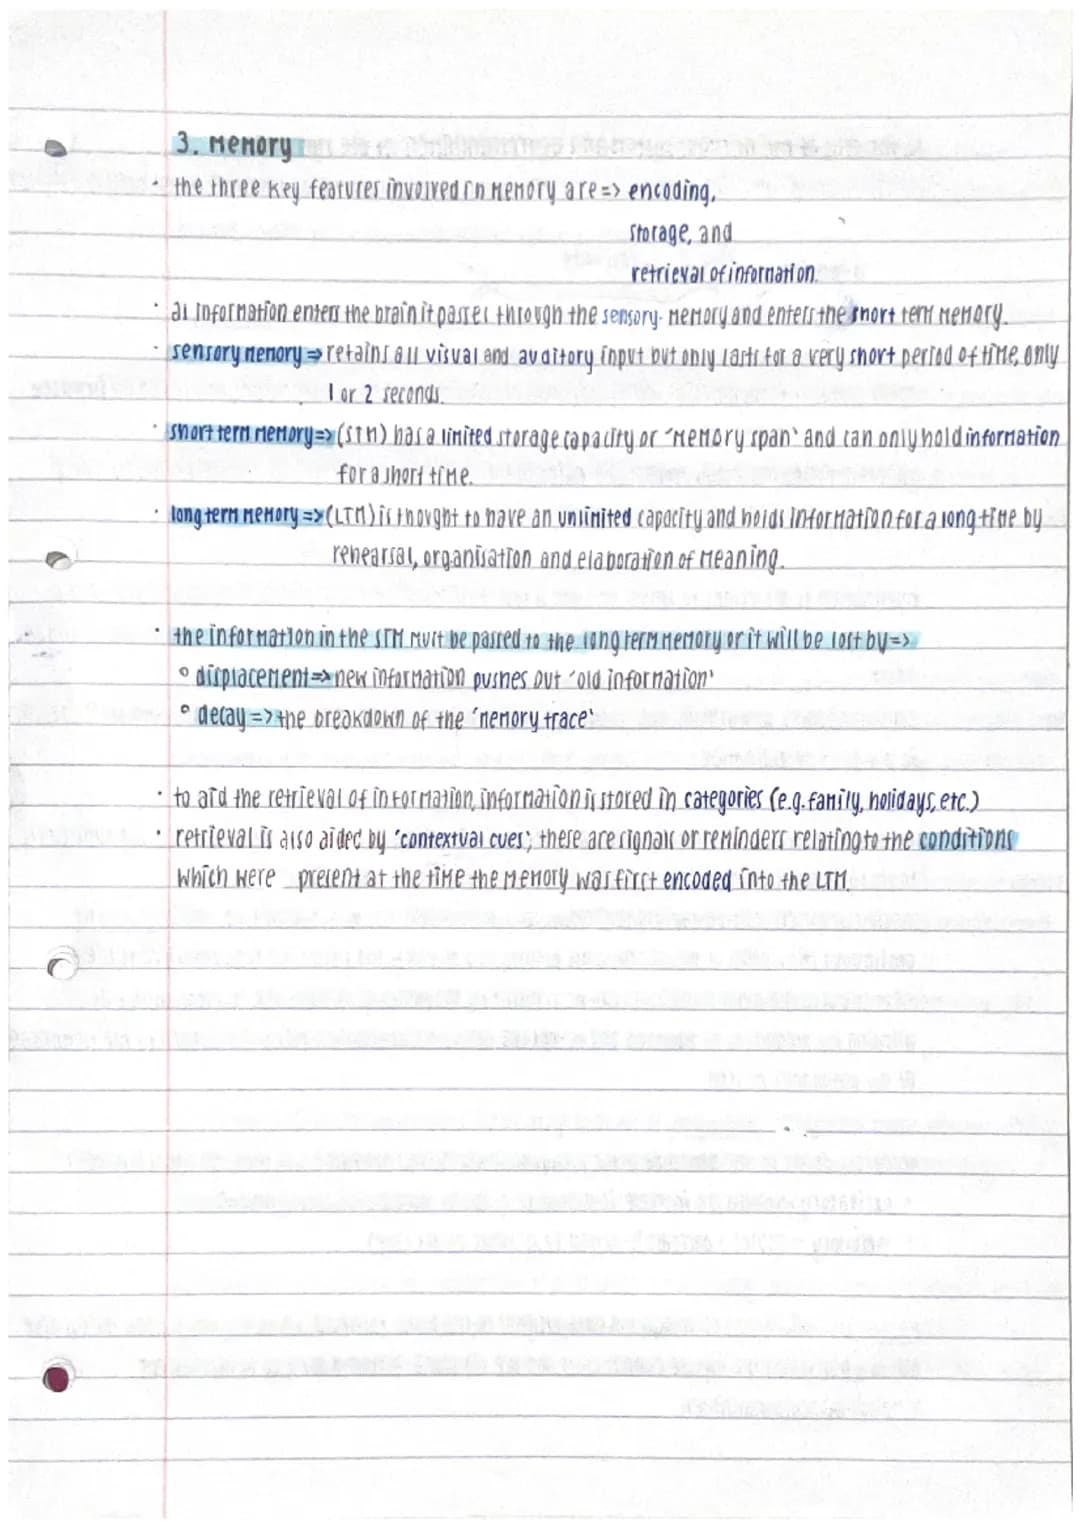 3. Memory
· the three key features involved in memory are => encoding,
storage, and
retrieval of information.
· as information enters the brain it passes through the sensory memory and enters the short term memory.
· sensory memory => retains all visual and auditory input but only lasts for a very short period of time, only
1 or 2 seconds.
· short term memory => (STM) has a limited storage capacity or 'memory span' and can only hold information
for a short time.
· long term memory => (LTM) is thought to have an unlimited capacity and holds information for a long time by
rehearsal, organisation and elaboration of meaning.
· the information in the STM must be passed to the long term memory or it will be lost by =>
° displacement => new information pushes out 'old information'
° decay => the breakdown of the 'memory trace'
· to aid the retrieval of information, information is stored in categories (e.g. family, holidays, etc.)
· retrieval is also aided by 'contextual cues', these are signals or reminders relating to the conditions
which were present at the time the memory was first encoded into the LTM.